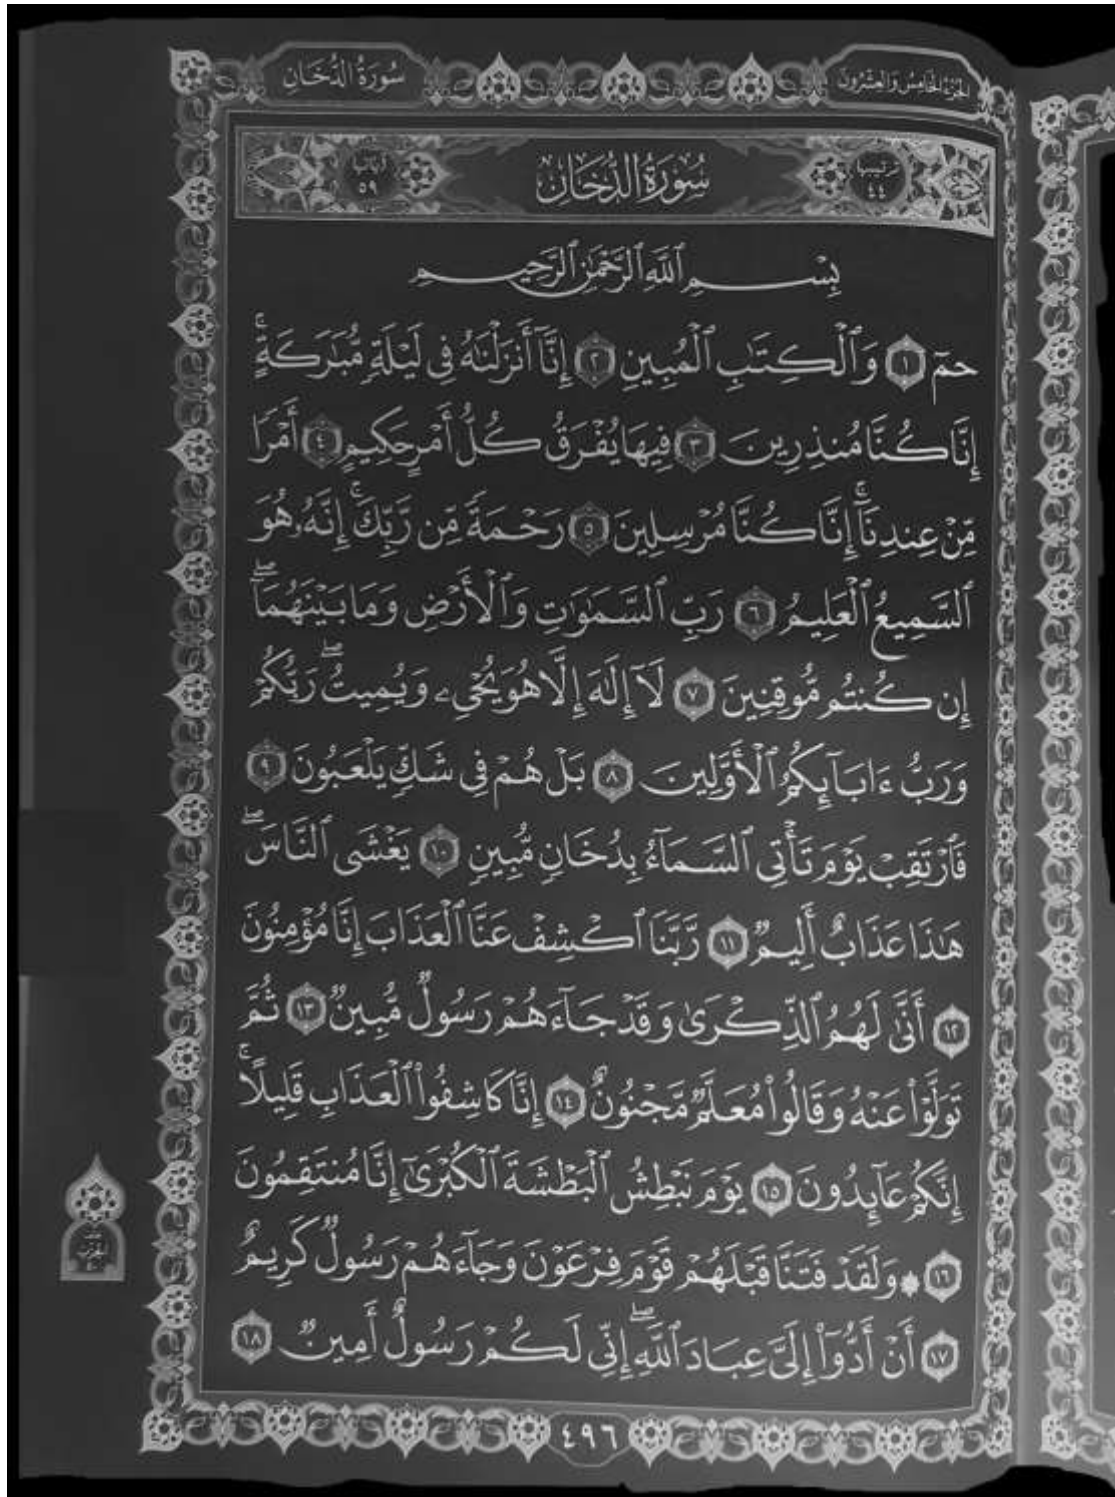 الجزء الخامس والعشرون
سُورَةُ الدُّخَانِ
ترتيبها
٤٤
سُورَةُ الدُّخَانِ
آياتها
٥٩
بِسْمِ ٱللَّهِ ٱلرَّحْمَٰنِ ٱلرَّحِيمِ
حمٓ ١ وَٱلْكِتَٰبِ ٱلْمُبِينِ ٢ إِنَّآ أَنزَلْنَٰهُ فِى لَيْلَةٍ مُّبَٰرَكَةٍ ۚ
إِنَّا كُنَّا مُنذِرِينَ ٣ فِيهَا يُفْرَقُ كُلُّ أَمْرٍ حَكِيمٍ ٤ أَمْرًا
مِّنْ عِندِنَآ ۚ إِنَّا كُنَّا مُرْسِلِينَ ٥ رَحْمَةً مِّن رَّبِّكَ ۚ إِنَّهُۥ هُوَ
ٱلسَّمِيعُ ٱلْعَلِيمُ ٦ رَبِّ ٱلسَّمَٰوَٰتِ وَٱلْأَرْضِ وَمَا بَيْنَهُمَآ ۖ
إِن كُنتُم مُّوقِنِينَ ٧ لَآ إِلَٰهَ إِلَّا هُوَ يُحْىِۦ وَيُمِيتُ ۖ رَبُّكُمْ
وَرَبُّ ءَابَآئِكُمُ ٱلْأَوَّلِينَ ٨ بَلْ هُمْ فِى شَكٍّ يَلْعَبُونَ ٩
فَٱرْتَقِبْ يَوْمَ تَأْتِى ٱلسَّمَآءُ بِدُخَانٍ مُّبِينٍ ١٠ يَغْشَى ٱلنَّاسَ ۖ
هَٰذَا عَذَابٌ أَلِيمٌ ١١ رَّبَّنَا ٱكْشِفْ عَنَّا ٱلْعَذَابَ إِنَّا مُؤْمِنُونَ
١٢ أَنَّىٰ لَهُمُ ٱلذِّكْرَىٰ وَقَدْ جَآءَهُمْ رَسُولٌ مُّبِينٌ ١٣ ثُمَّ
تَوَلَّوْا۟ عَنْهُ وَقَالُوا۟ مُعَلَّمٌ مَّجْنُونٌ ١٤ إِنَّا كَاشِفُوا۟ ٱلْعَذَابِ قَلِيلًا ۚ
إِنَّكُمْ عَآئِدُونَ ١٥ يَوْمَ نَبْطِشُ ٱلْبَطْشَةَ ٱلْكُبْرَىٰٓ إِنَّا مُنتَقِمُونَ
١٦ ۞ وَلَقَدْ فَتَنَّا قَبْلَهُمْ قَوْمَ فِرْعَوْنَ وَجَآءَهُمْ رَسُولٌ كَرِيمٌ
١٧ أَنْ أَدُّوٓا۟ إِلَىَّ عِبَادَ ٱللَّهِ ۖ إِنِّى لَكُمْ رَسُولٌ أَمِينٌ ١٨
الحزب
٤٩٦